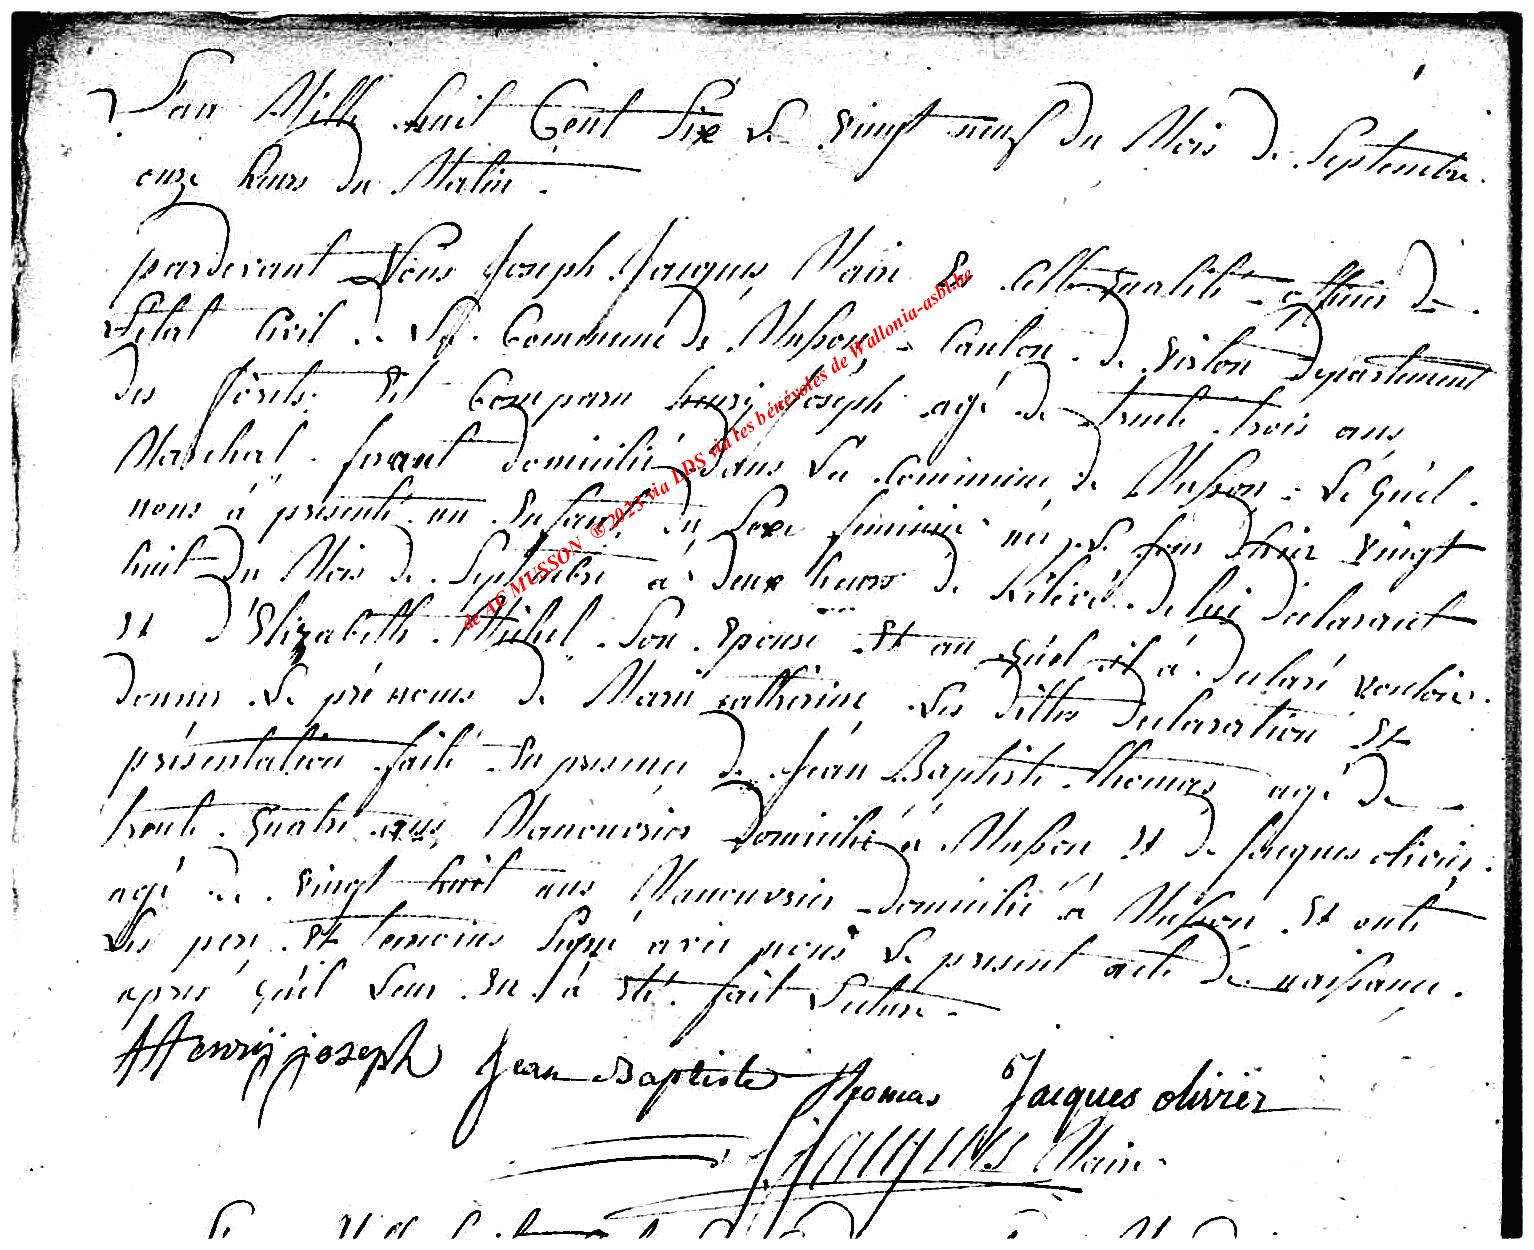 L'an Mille huit Cent Six Le vingt neuf du Mois de Septembre
onze heurs du Matin.
pardevant Nous Joseph Jacques, Maire et cette qualité officier de
L'état Civil de La Commune de Musson, Canton de virton departement
des forêts. Est Comparu henry joseph agé de trente trois ans
Marchal ferant domicilié dans La Commune de Musson, Le quel
nous à présenté un Enfant du Sexe feminin né Le jour d'hier vingt
huit du Mois de Septembre à deux heures de Relevé de lui declarant
Et d'Elizabeth Michel Son Epouse Et au quel il à declaré vouloir
donner Le prénoms de Marie catherine Les dittes declaration Et
présentation faite En presence de Jean Baptiste thomas agé de
trente quatre ans Manouvrier domicilié à Musson Et de Jacques olivier,
agé de vingt huit ans Manouvrier domicilié à Musson Et onté
Les pere Et temoins Signé avec nous Le present acte de naissance
apres quil Leur En à été fait Lecture.
Henrÿ joseph Jean Baptiste thomas Jacques olivier
J Jacques Maire
de AC MUSSON ® 2023 via LDS via les bénévoles de Wallonia-asbl.be